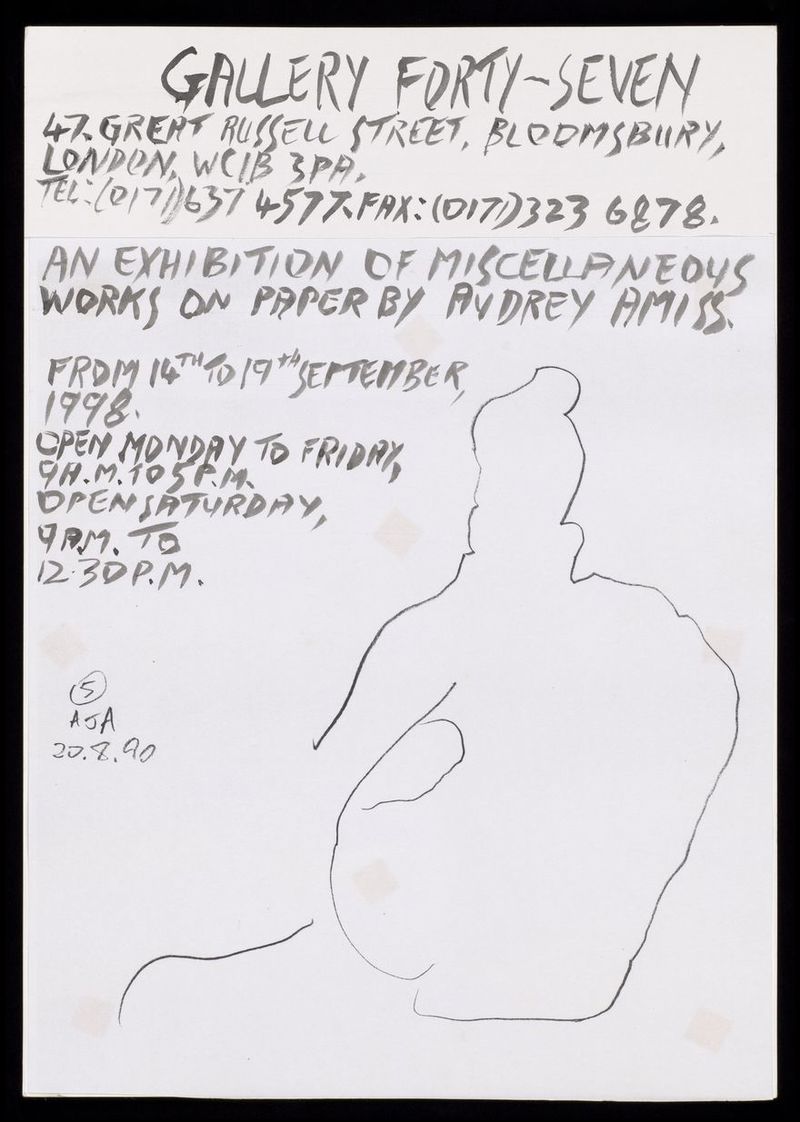 GALLERY FORTY-SEVEN
47. GREAT RUSSELL STREET, BLOOMSBURY,
LONDON, WC1B 3PA.
TEL:(0171)637 4577. FAX:(0171)323 6878.
AN EXHIBITION OF MISCELLANEOUS
WORKS ON PAPER BY AUDREY AMISS.
FROM 14TH TO 19TH SEPTEMBER,
1998.
OPEN MONDAY TO FRIDAY,
9A.M. TO 5P.M.
OPEN SATURDAY,
9AM. TO
12.30P.M.
5
AJA
20.8.90